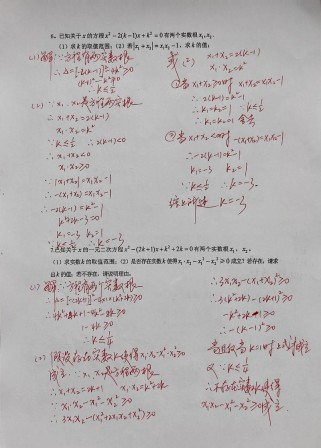 6、已知关于x的方程x²-2(k-1)x+k²=0有两个实数根x₁,x₂.
(1)求k的取值范围；(2)若|x₁+x₂|=x₁x₂-1，求k的值；
(1)解：∵方程有两实数根
∴Δ=[-2(k-1)]²-4k²≥0
(k-1)²-k²≥0
∴k≤½
(2)∵x₁,x₂是方程两实根
∴x₁+x₂=2(k-1)
x₁·x₂=k²
∵k≤½ ∴2(k-1)<0
∴x₁+x₂<0
x₁·x₂≥0
∵|x₁+x₂|=x₁x₂-1
∴-(x₁+x₂)=x₁x₂-1
∴-2(k-1)=k²-1
k²+2k-3=0
k₁=-3 k₂=1
∵k≤½ ∴k=-3
(2) x₁+x₂=2(k-1)
x₁·x₂=k²
①当x₁+x₂≥0时 x₁+x₂=x₁x₂-1
∴2(k-1)=k²-1
∴k₁=k₂=1 ∵k≤½
∴k₁=k₂=1 舍去
②当x₁+x₂<0时 -(x₁+x₂)=x₁x₂-1
∴-2(k-1)=k²-1
k₁=-3 k₂=1
∵k≤½ ∴k=-3.
综上所述 k=-3
7.已知关于x的一元二次方程x²-(2k+1)x+k²+2k=0有两个实根x₁，x₂.
(1)求实数k的取值范围；(2)是否存在实数k使得x₁·x₂-x₁²-x₂²≥0成立？若存在，请求
出k的值；若不存在，请说明理由.
(1)解：∵方程有两个实数根
∴4k²+4k+1-4k²-8k≥0
1-4k≥0
∴k≤¼
(2)假设存在实数k使得x₁·x₂-x₁²-x₂²≥0
成立. ∵x₁,x₂是方程两实根
∴x₁+x₂=2k+1 x₁x₂=k²+2k
∵x₁·x₂-x₁²-x₂²≥0
∴3x₁x₂-(x₁²+2x₁x₂+x₂²)≥0
∴3x₁x₂-(x₁+x₂)²≥0
∴3(k²+2k)-(2k+1)²≥0
∴-k²+2k-1≥0
∴-(k-1)²≥0
当且仅当k=1时上式成立
又∵k≤¼
∴不存在实数k使得
x₁x₂-x₁²-x₂²≥0成立.